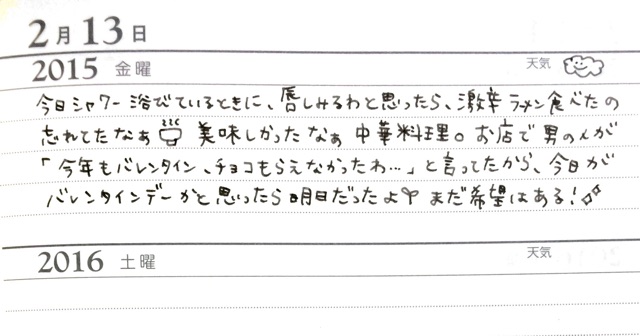 2月13日
2015 金曜 天気
今日シャワー浴びているときに、唇しみるわと思ったら、激辛ラーメン食べたの
忘れてたなぁ 美味しかったなぁ 中華料理。お店で男の人が
「今年もバレンタイン、チョコもらえなかったわ…」と言ってたから、今日が
バレンタインデーかと思ったら明日だったよ まだ希望はある!
2016 土曜 天気